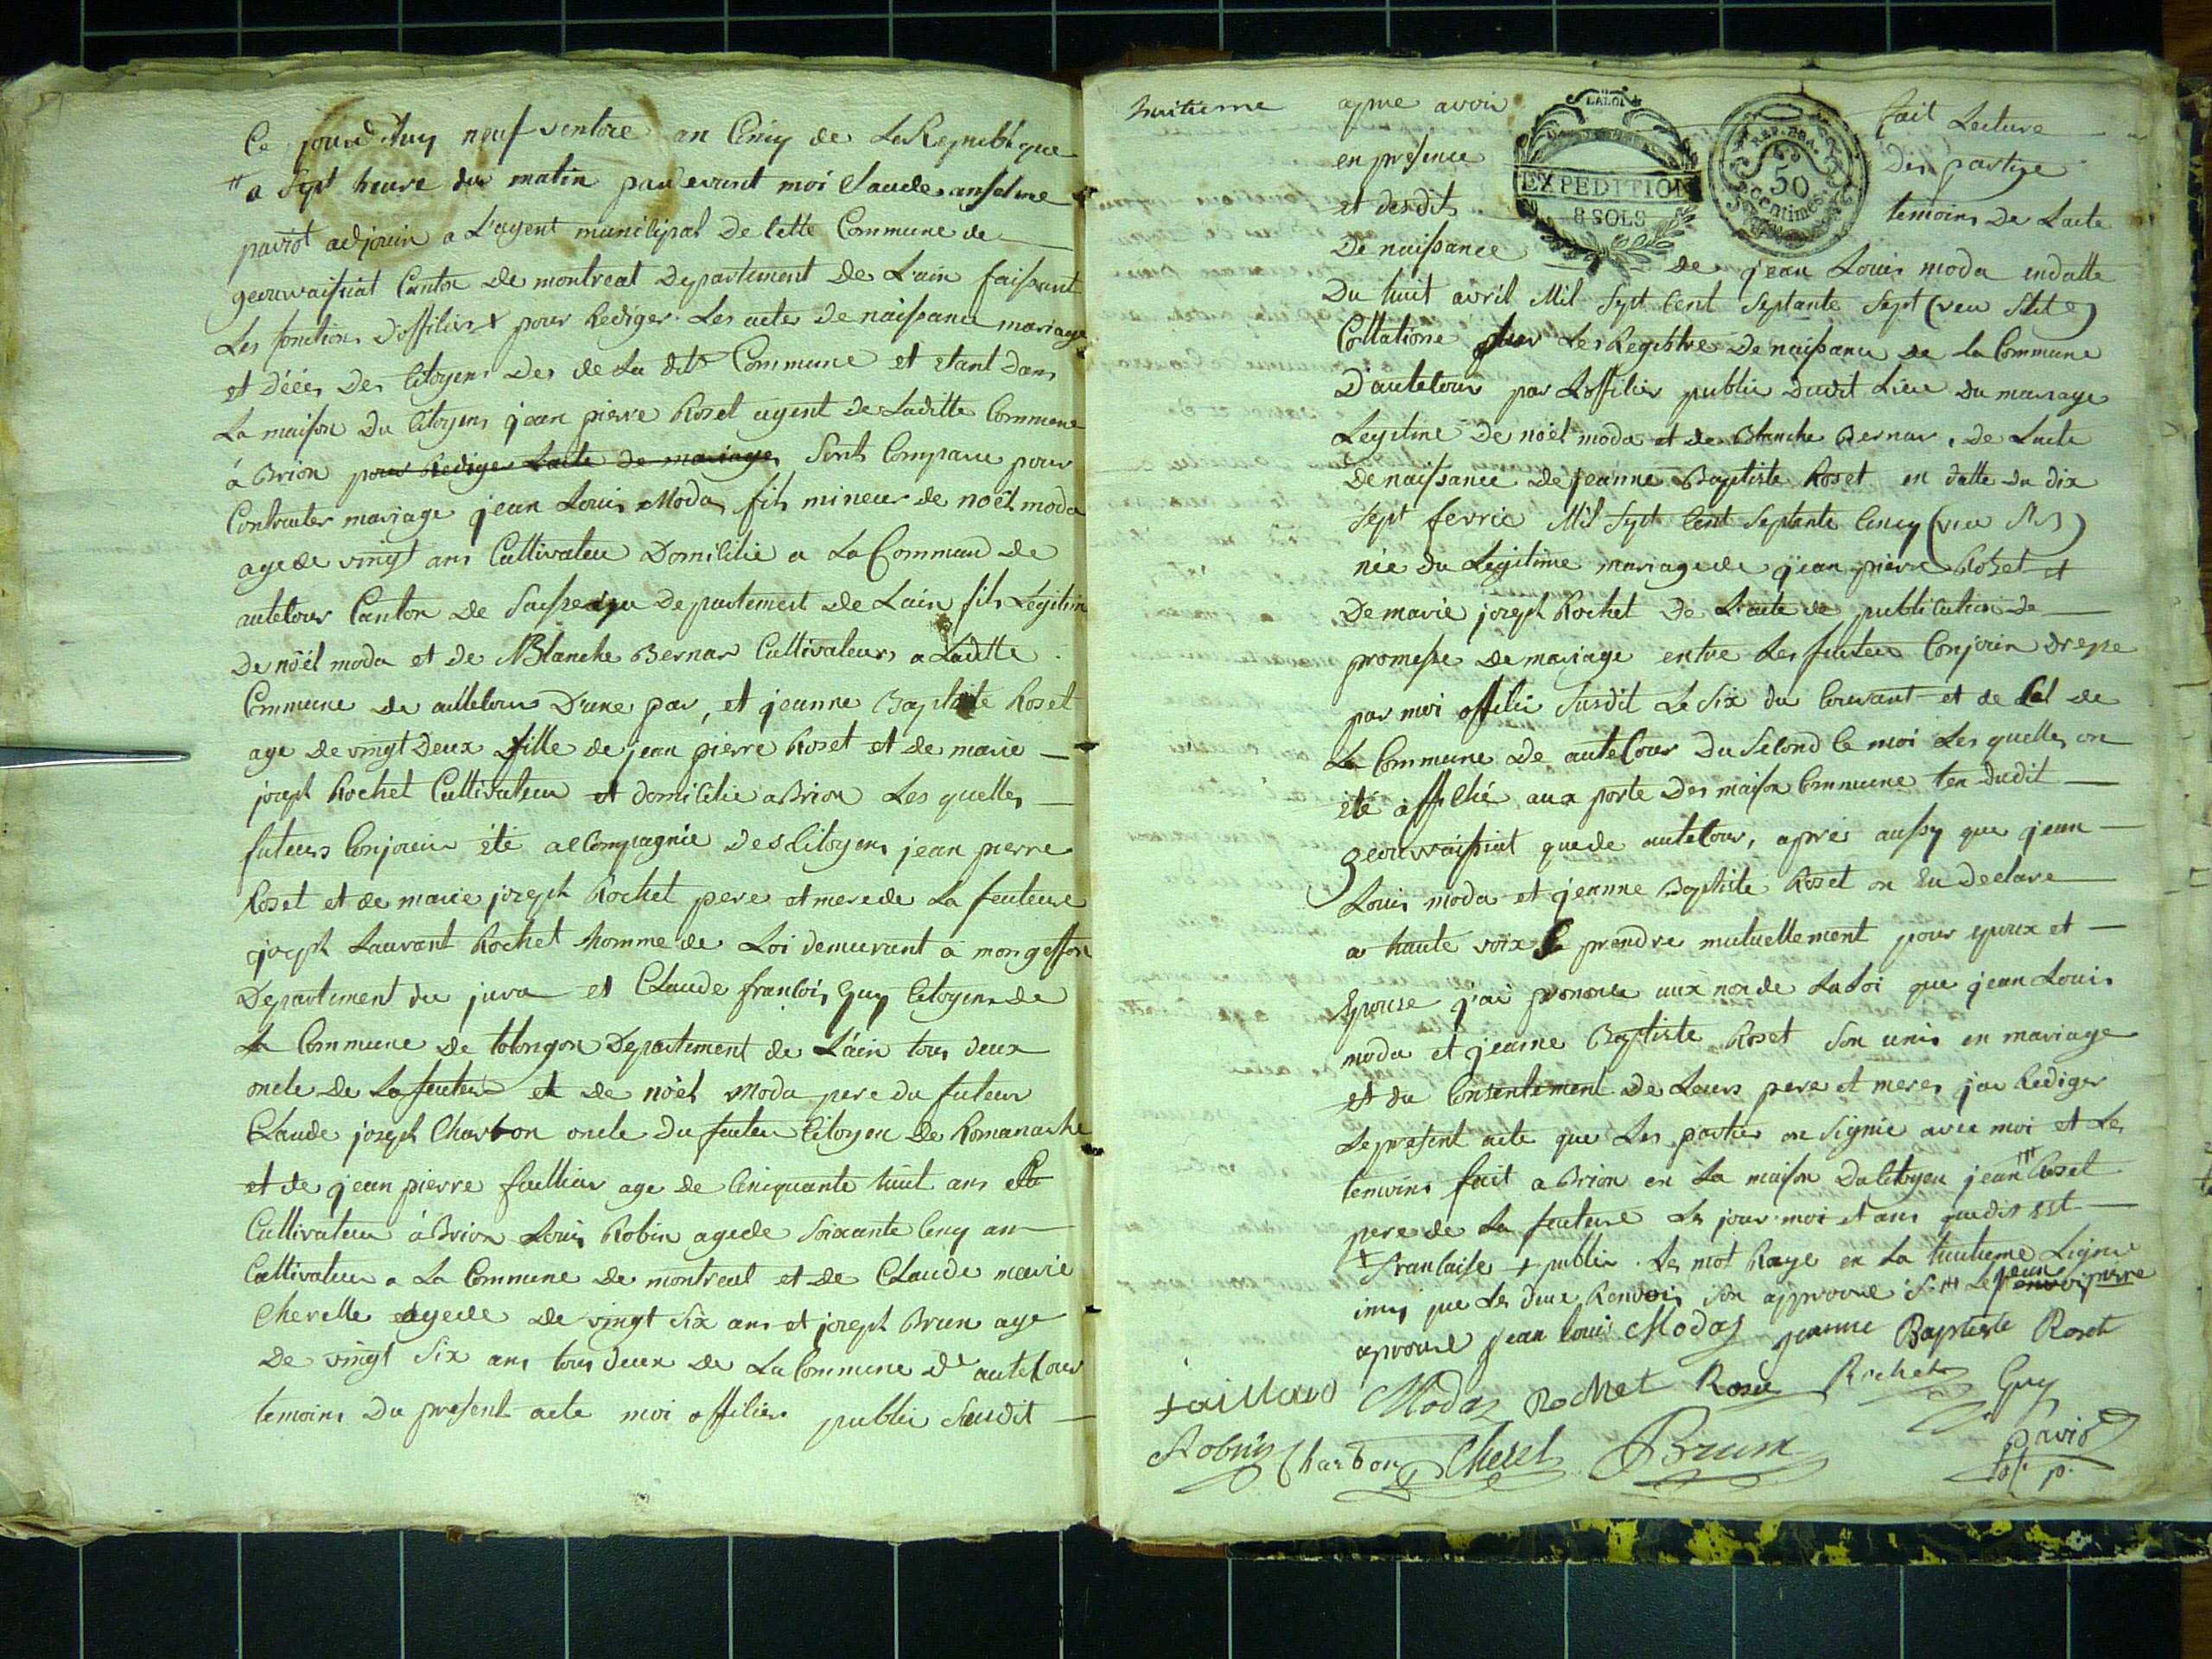 Ce jourd'huy neuf ventose an Cinq de La Republique
a Sept heure du matin pardevant moi Claude anselme
paviot adjoint a L'agent municipal de Cette Commune de
geouvaissiat Canton de montreal Departement de L'ain faissant
Les fonctions D'officier + pour Rediger Les actes de naissance mariage
et décès Des Citoyens Des de La dite Commune et etant dans
La maison Du Citoyens jean pierre Roset agent de Laditte Commune
à Brion pour Rediger Lacte de mariage Sonts Comparu pour
Contracter mariage jean Louis Modas fils mineur de noël moda
age de vingt ans Cultivateur Domicilié a La Commune de
autetour Canton de Departement de Lain fils Legitime
De nöel moda et de Blanche Bernar Cultivateurs a Laditte
Commune de autetour D'une par, et jeanne Baptiste Roset
age de vingt Deux fille de jean pierre Roset et de marie
joseph Rochet Cultivateur et domicilié a Brion Les quelles
futeurs Conjoin été accompagnée des Citoyens jean pierre
Roset et de marie joseph Rochet pere et mere de La feuteure
joseph Laurant Rochet homme de Loi demeurant à mongeffon
Departement du jura et Claude francois Guy Citoyen de
La Commune de tolongon Departement de L'ain tous deux
oncle de La feuteur et de nöel Moda pere du futeur
Claude joseph Charbon oncle du feuteur Citoyen de Romanache
et de jean pierre age de Cinquante huit ans
Cultivateur à Brion Louis Robin age de Soixante Cinq an
Cultivateur a La Commune de montreal et de Claude marie
Cherelle agede de vingt Six ans et joseph Brun age
De vingt Six ans tous deux de La Commune de autetour
temoins Du present acte moi officier public Susdit
huitieme
apre avoir fait Lecture
en presence Des partye
et desdits temoins De Lacte
LA LOI
EXPEDITION
8 SOLS
REP. FRA.
50
Centimes
De naissance de jean Louis moda endatte
Du huit avril Mil Sept Cent Septante Sept (veu Stile)
Collatione Sur Les Registre De naissance de La Commune
D'autetour par Lofficier public dudit Lieu du mariage
Legitime De noël moda et de Blanche Bernar, de Lacte
De naissance de jeanne Baptiste Roset en datte du dix
Sept fevrie Mil Sept Cent Septante Cinq (veu St)
née du Legitime mariage de jean pierre Roset et
De marie joseph Rochet De L'acte de publication de
promesse de mariage entre Les feuteur Conjoin drepe
par moi officie Susdit Le Six du Courant et de Cel de
La Commune de autetour Du Second Ce moi Les quelles on
été affiché aux porte Des maison Commune ten dudit
geouvaissiat que de autetour, aprés aussy que jean
Louis moda et jeanne Baptiste Roset on Eu Declare
a haute voix Se prendre mutuellement pour epoux et
Epouse j'ai prononcé aux non de La Loi que jean Louis
moda et jeanne Baptiste Roset Son unis en mariage
et du Consentement De Leurs pere et meres jai Rediger
Le present acte que Les parties on Signie avec moi et Les
temoins fait a Brion en La maison Du Citoyen jean Roset
pere de La feuteure Le jour moi et ans quedis est
+ francaise + public. Le mot Raye en La huitieme Ligne
insy que Les deux Renvois Son approuve Le Renvoi pierre
aprouve jean louis Modas jeanne Baptiste Roset
taillard Modas Rochet Rosée Rochet Guy
Robin Charbon Cherel Brun Paviot
of. p.